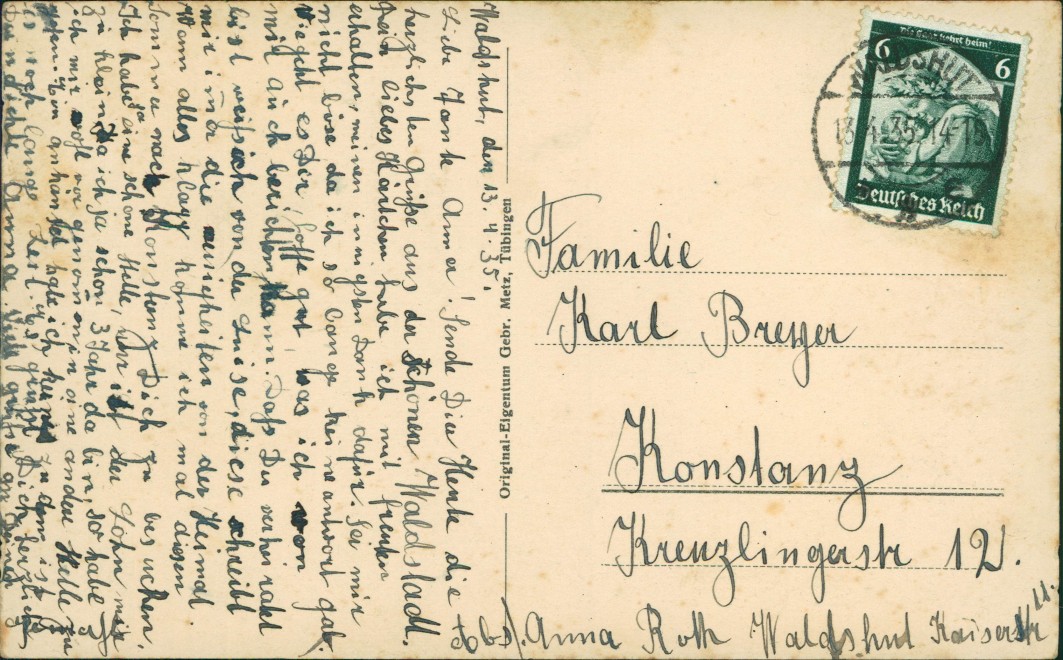 Waldshut, den 13. 4. 35.
Liebe Tante Anna! Sende Dir Heute die
herzlichsten Grüße aus der Schönen Waldstadt.
Dein liebes Kärtchen habe ich mit freuden
erhalten, meinen innigsten Dank dafür. Sei mir
nicht böse da ich so lange keine antwort gab.
Wie geht es Dir, hoffe gut, was ich von
mir auch berichten kann. Dass Du verheiratet
bist weiß ich von der Luise, diese schreibt
mir immer die neuigkeiten von der Heimat
Wann alles klapp komme ich mal diesen
Sommer nach Konstanz Dich zu besuchen.
Ich habe da eine schöne Stelle, nur ist der Lohn mir
zu klein, da ich ja schon 3 Jahr da bin, so habe
ich mir wohl vor genommen eine andere Stelle zu
Die Saar kehrt heim!
6 6
WALDSHUT
13.4.35.14-1
Deutsches Reich
Original-Eigentum Gebr. Metz, Tübingen
Familie
Karl Breyer
Konstanz
Kreuzlingerstr 12.
Abs. Anna Roth Waldshut Kaiserstr